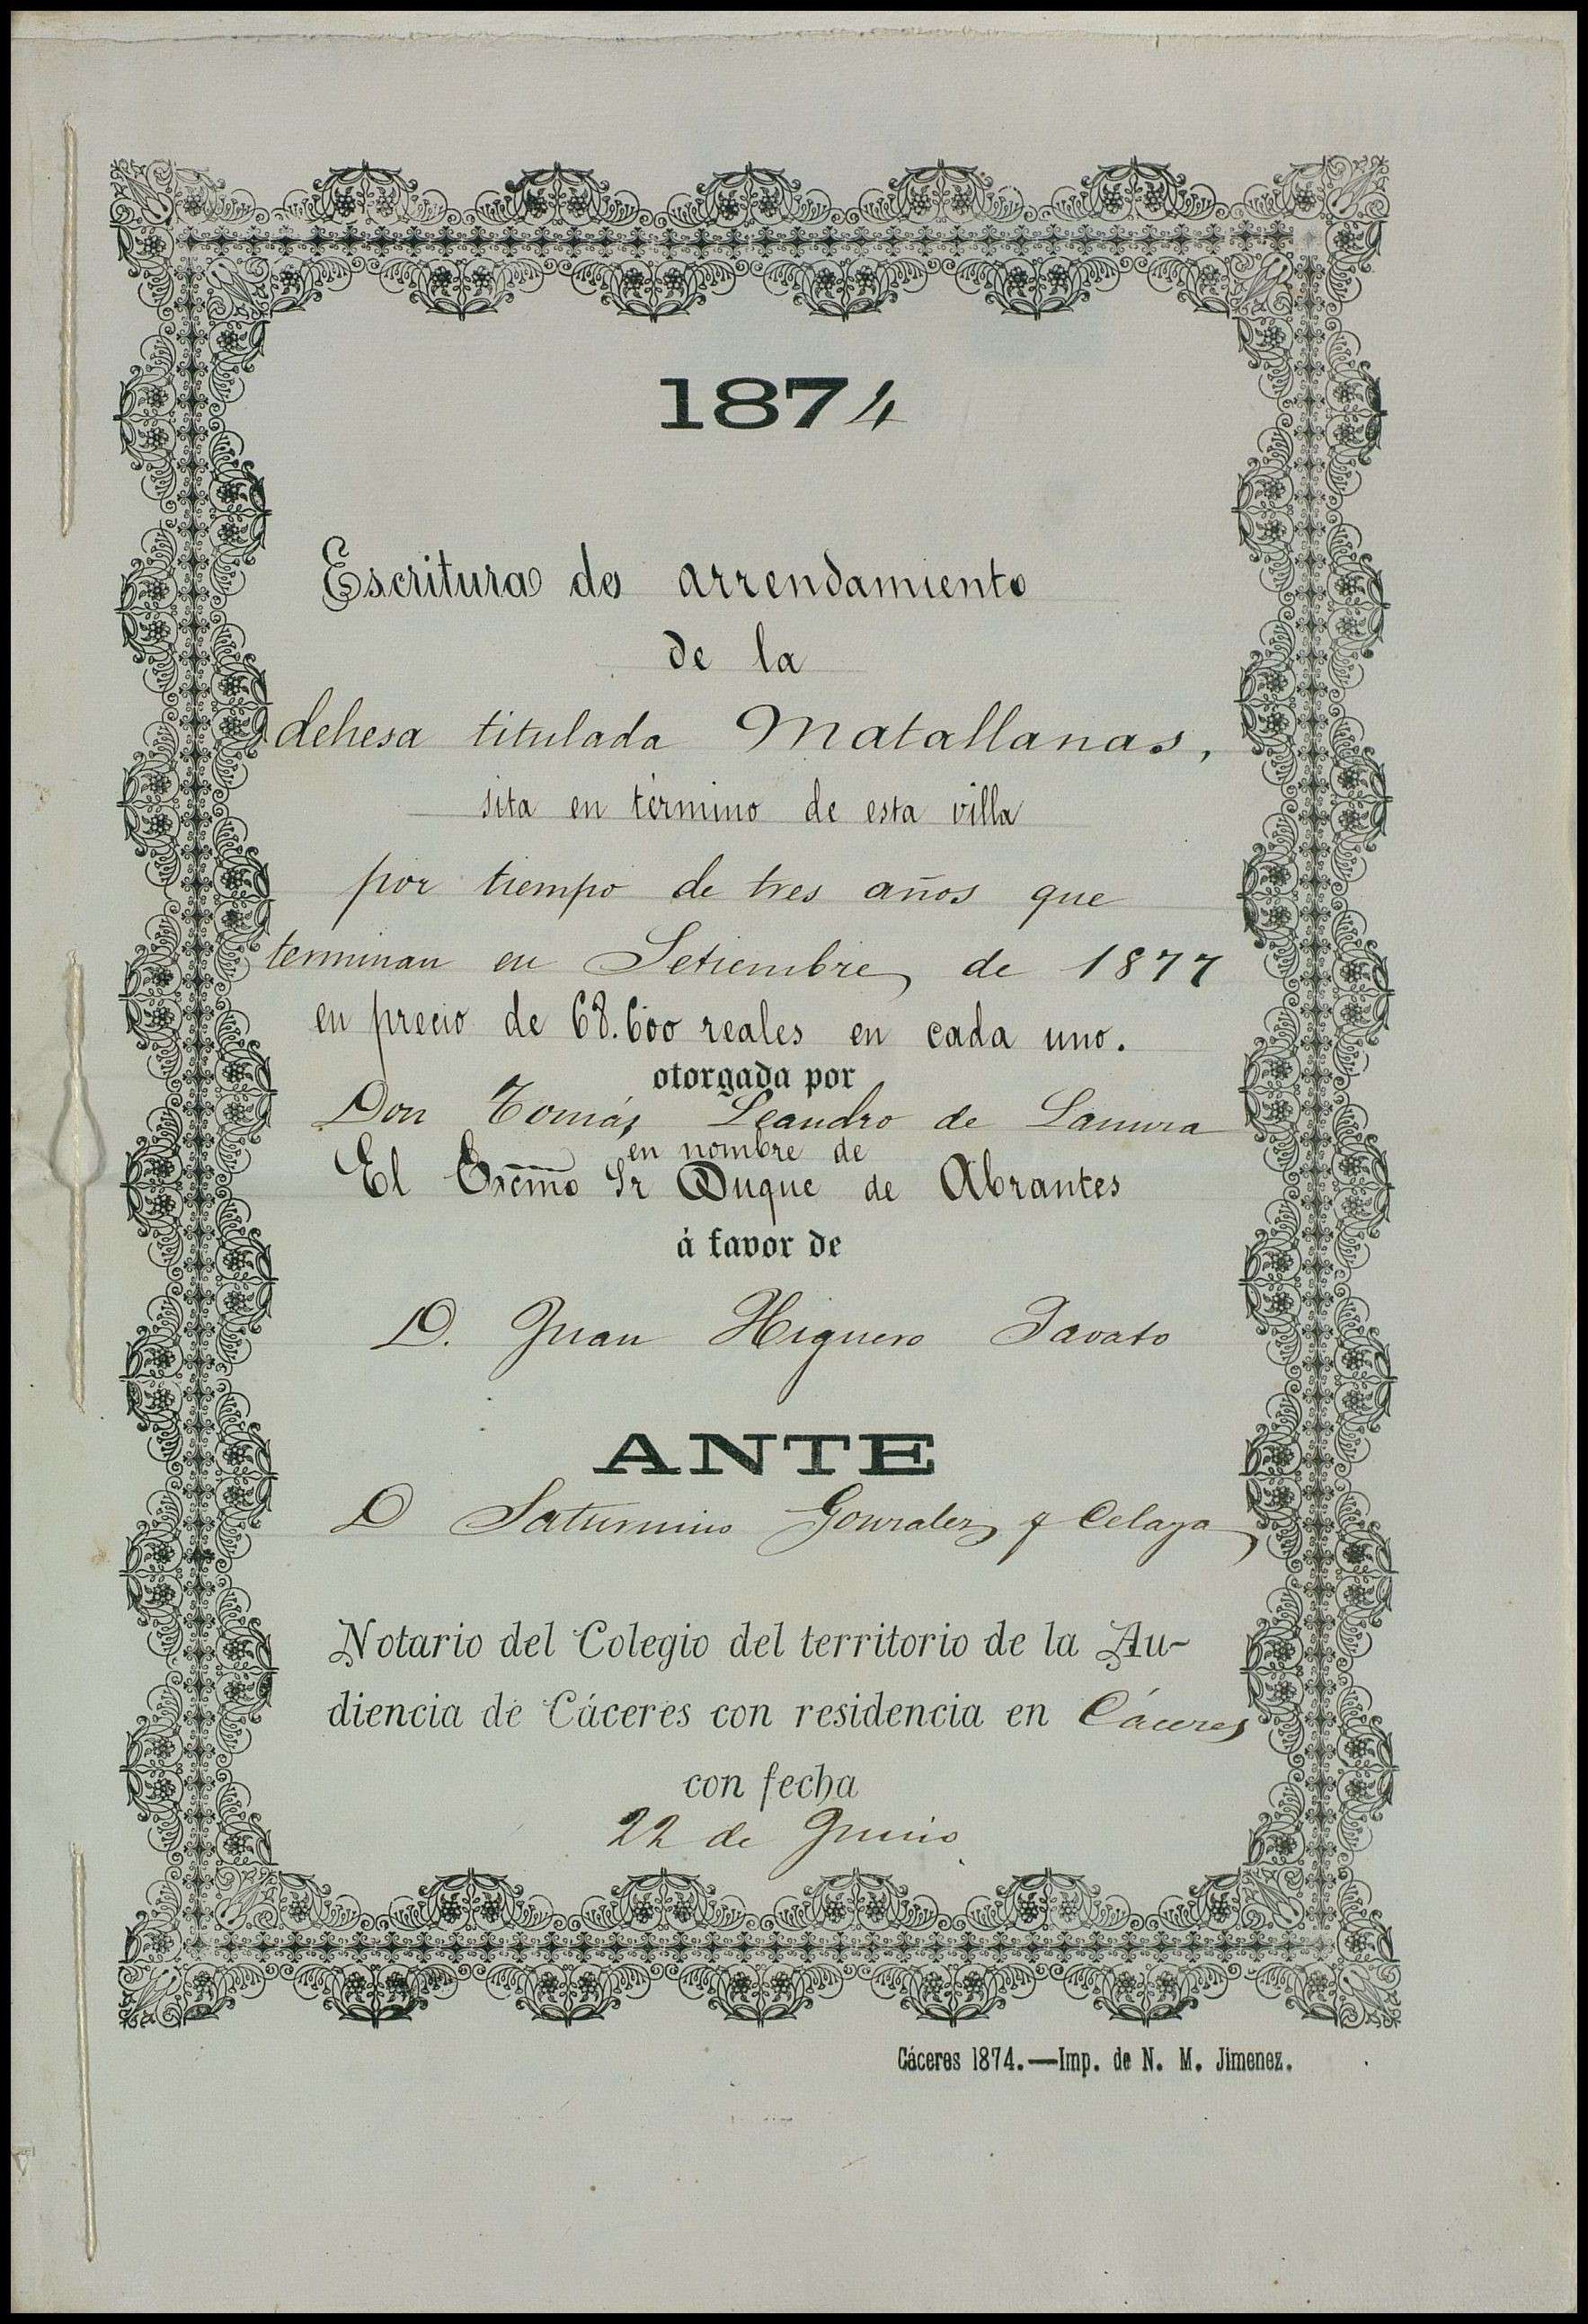 1874
Escritura de arrendamiento
de la
dehesa titulada Matallanas,
sita en término de esta villa
por tiempo de tres años que
terminan en Setiembre de 1877
en precio de 68.600 reales en cada uno.
otorgada por
Don Tomás Leandro de
en nombre de
El Excmo Sr Duque de Abrantes
á favor de
D. Juan Higuero
ANTE
D Saturnino Gonzalez y Celaya
Notario del Colegio del territorio de la Au-
diencia de Cáceres con residencia en Cáceres
con fecha
22 de Junio
Cáceres 1874.—Imp. de N. M. Jimenez.